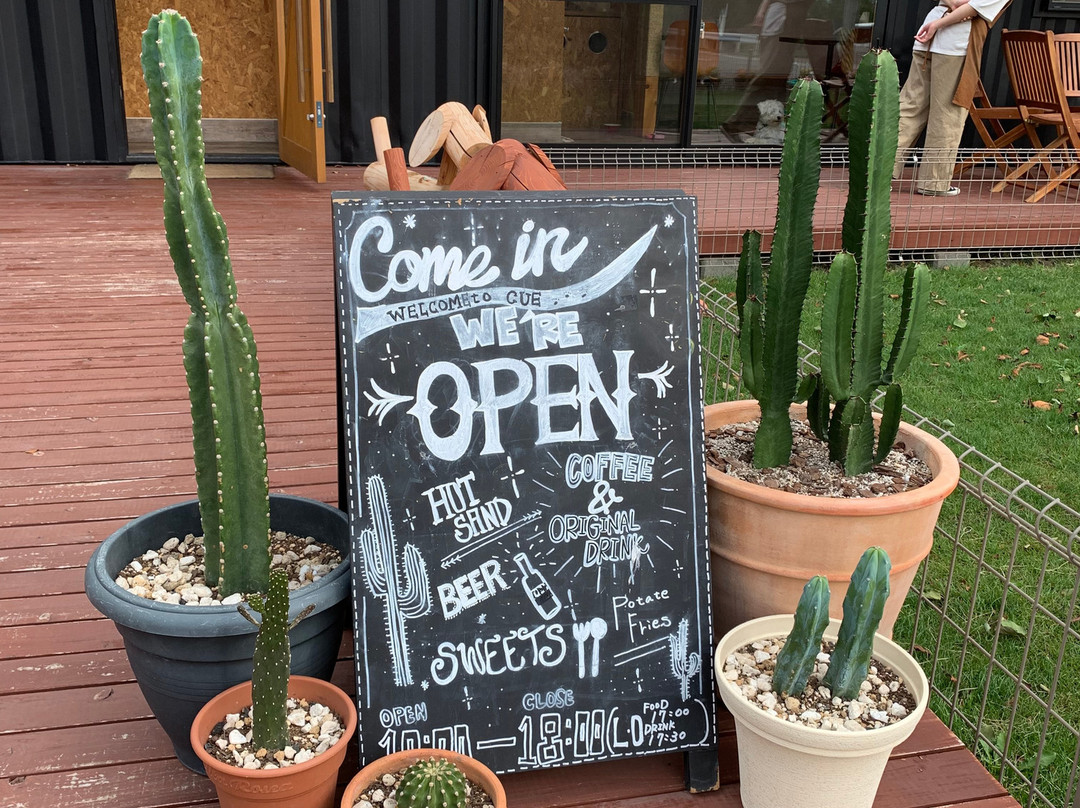 Come in
WELCOME to CUE
WE'RE
OPEN
COFFEE
&
ORIGINAL
DRINK
HOT
SAND
BEER
Potate
Fries
SWEETS
OPEN
CLOSE
10:00 — 18:00 (L.O FOOD 17:00
DRINK 17:30)